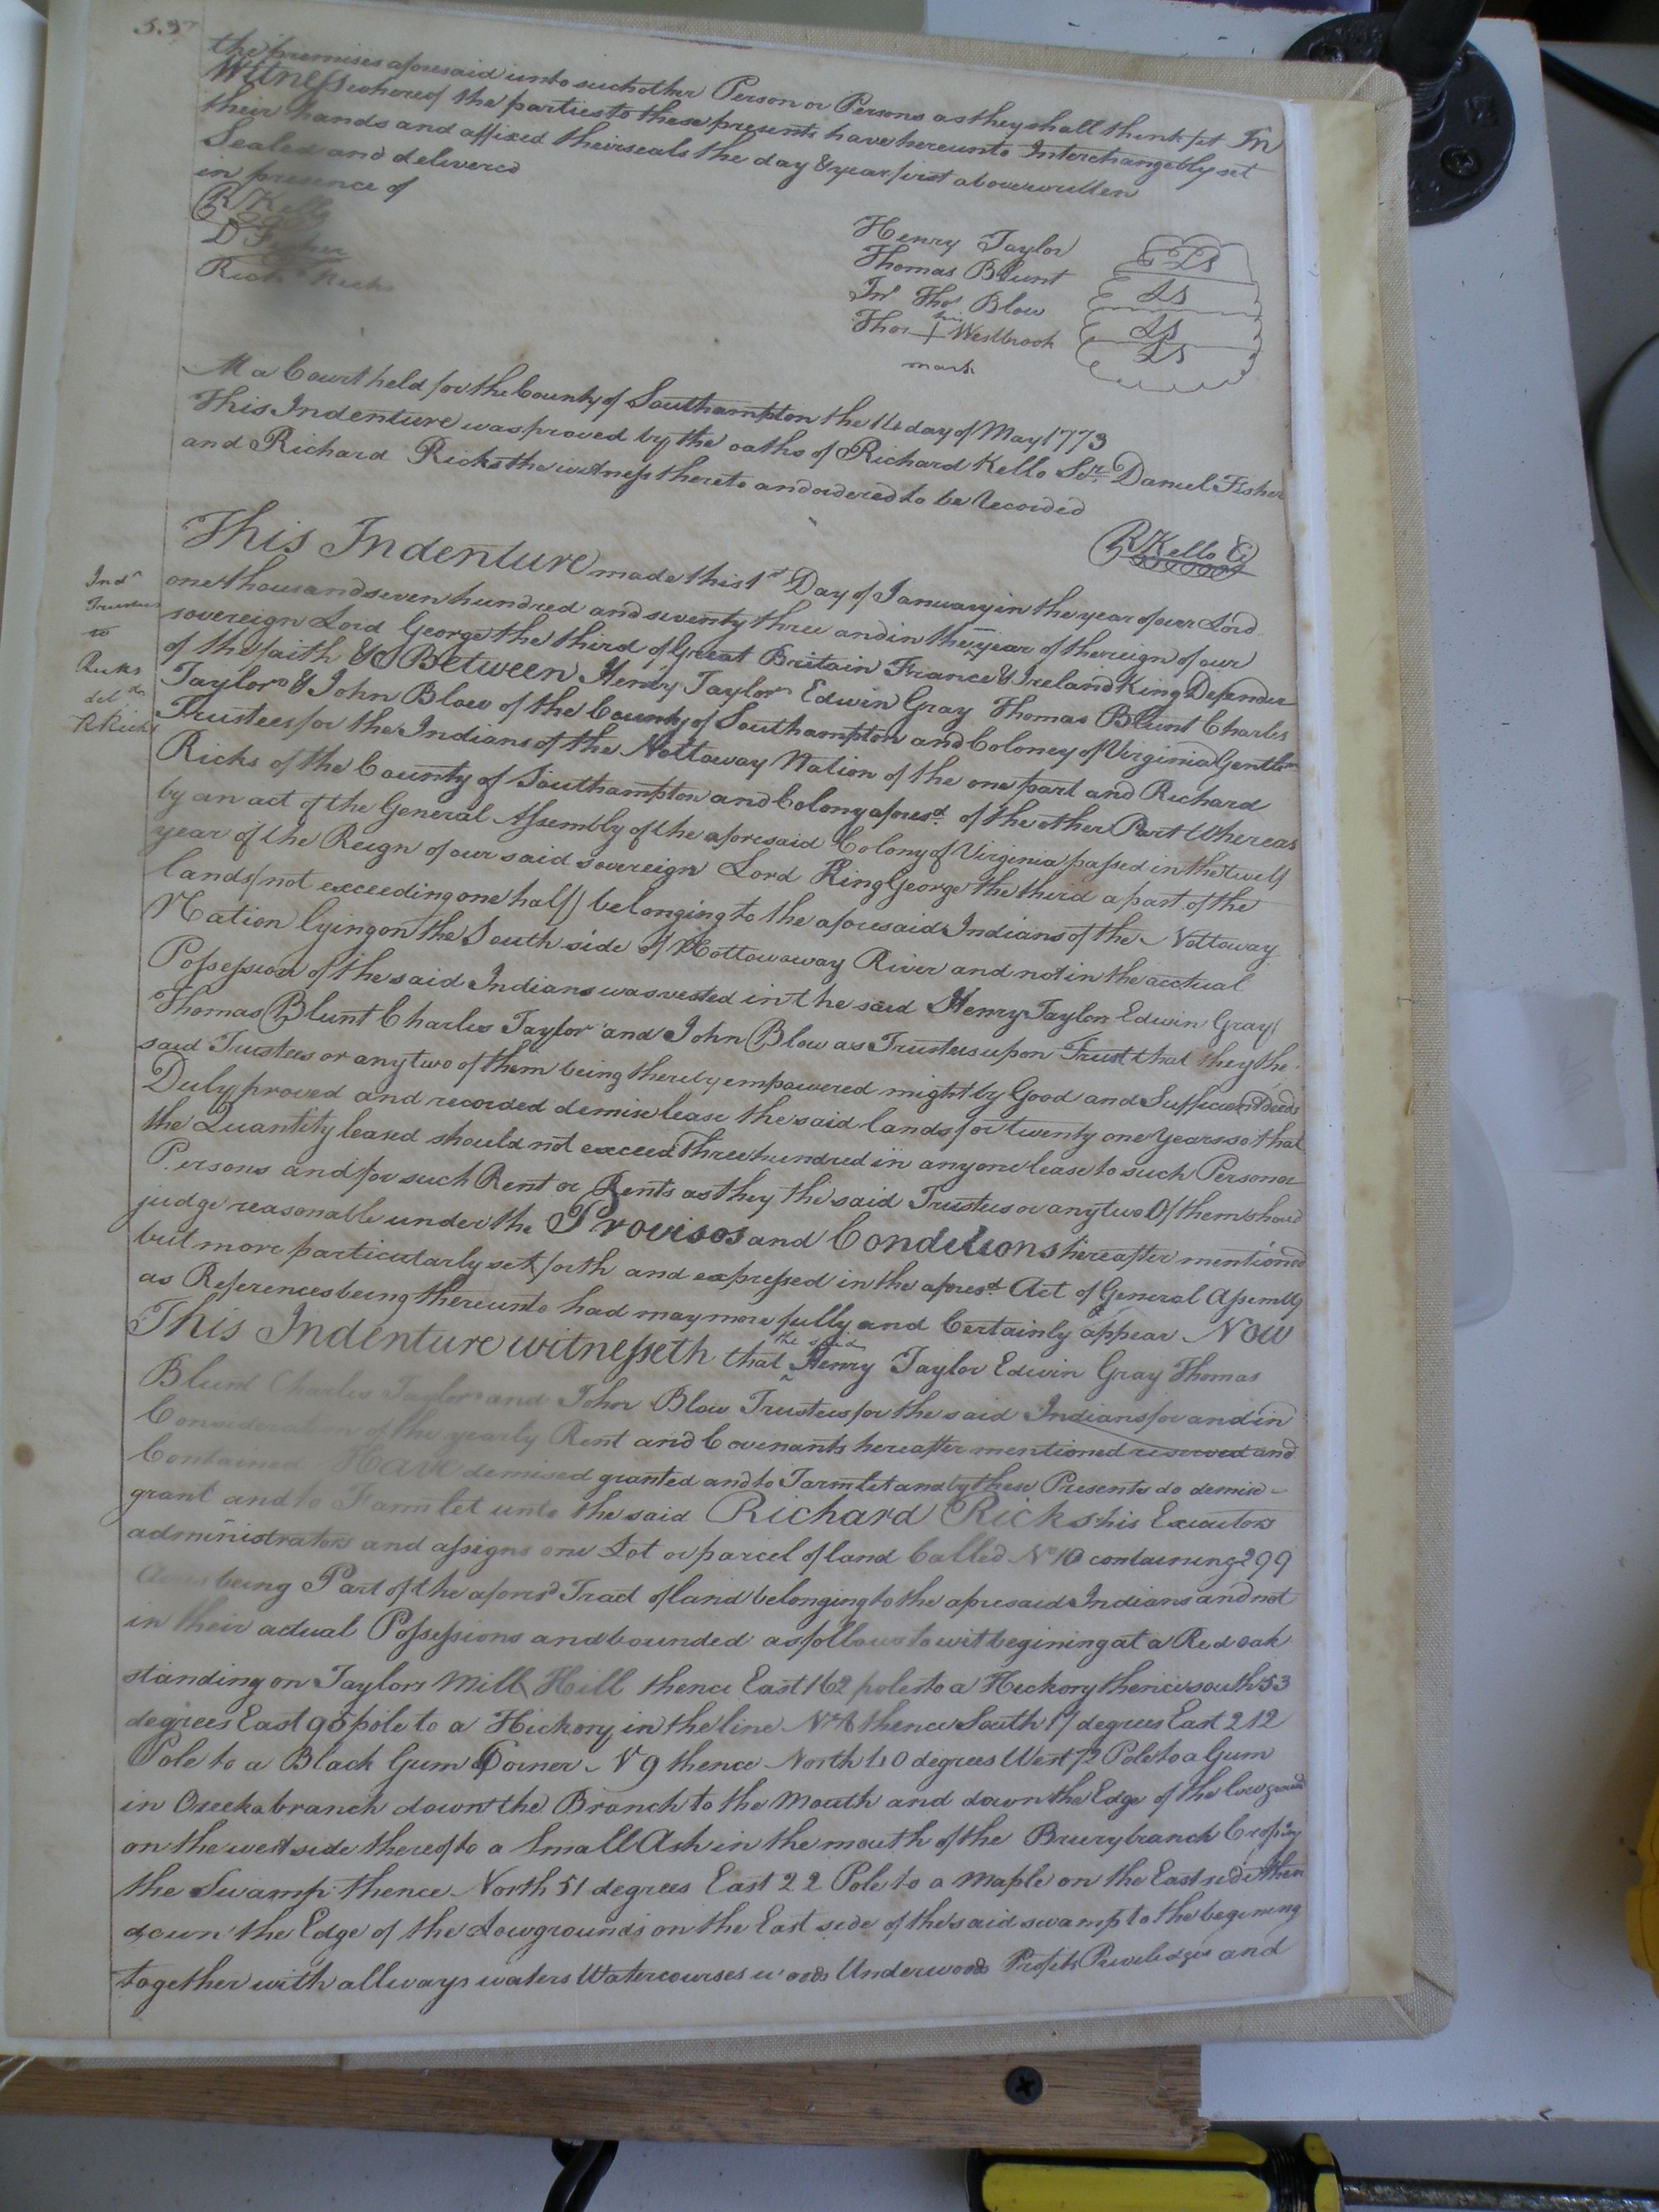 the premises aforesaid unto such other Person or Persons as they shall think fit In
Witness whereof the parties to these presents have hereunto Interchangebly set
their hands and affixed their seals the day & year first above written
Sealed and delivered
in presence of
R Kello
D Fisher
Richd Ricks
Henry Taylor LS
Thomas Blunt LS
Jno Thos Blow LS
his
Thos + Westbrook LS
mark
At a Court held for the County of Southampton the 14 day of May 1773
This Indenture was proved by the oaths of Richard Kello Senr Daniel Fisher
and Richard Ricks the witness thereto and ordered to be Recorded
R Kello C
This Indenture made this 1st Day of January in the year of our Lord
Indn
Trustees
to
Ricks
deld
R Ricks
one thousand seven hundred and seventy three and in the year of the reign of our
sovereign Lord George the third of Great Britain France & Ireland King Defender
of the faith &c Between Henry Taylor Edwin Gray Thomas Blunt Charles
Taylor & John Blow of the County of Southampton and Coloney of Virginia Gentlem
Trustees for the Indians of the Nottoway Nation of the one part and Richard
Ricks of the County of Southampton and Colony aforesd. of the other Part Whereas
by an act of the General Assembly of the aforesaid Colony of Virginia passed in the twelf
year of the Reign of our said sovereign Lord King George the third a part of the
lands (not exceeding one half) belonging to the aforesaid Indians of the Nottoway
Nation lying on the South side of Nottowaway River and not in the acctual
Possession of the said Indians was vested in the said Henry Taylor Edwin Gray
Thomas Blunt Charles Taylor and John Blow as Trustees upon Trust that they the
said Trustees or any two of them being thereby empowered might by Good and Sufficient Deeds
Duly proved and recorded demise lease the said lands for twenty one Years so that
the Quantity leased should not exceed three hundred in any one lease to such Person or
Persons and for such Rent or Rents as they the said Trustees or any two Of them should
judge reasonable under the Provisos and Conditions hereafter mentioned
but more particularly set forth and expressed in the aforesd Act of General Assembly
as References being thereunto had may more fully and Certainly appear Now
This Indenture witnesseth that the said Henry Taylor Edwin Gray Thomas
Blunt Charles Taylor and John Blow Trustees for the said Indians for and in
Consideration of the yearly Rent and Covenants hereafter mentioned reserved and
Contained Have demised granted and to Farm let and by these Presents do demise
grant and to Farm let unto the said Richard Ricks his Executors
administrators and assigns one Lot or parcel of land Called No 10 containing 299
Acres being Part of the aforesd Tract of land belonging to the aforesaid Indians and not
in their actual Possessions and bounded as follows to wit begining at a Red oak
standing on Taylors Mill Hill thence East 162 poles to a Hickory thence south 53
degrees East 95 pole to a Hickory in the line No 8 thence South 17 degrees East 212
Pole to a Black Gum Corner N 9 thence North 40 degrees West 72 Pole to a Gum
in branch down the Branch to the Mouth and down the Edge of the low ground
on the west side thereof to a Small Ash in the mouth of the branch Crossing
the Swamp thence North 51 degrees East 22 Pole to a Maple on the East side then
down the Edge of the Lowgrounds on the East side of the said swamp to the begining
together with all ways waters Watercourses woods Underwoods Profits Priviledges and